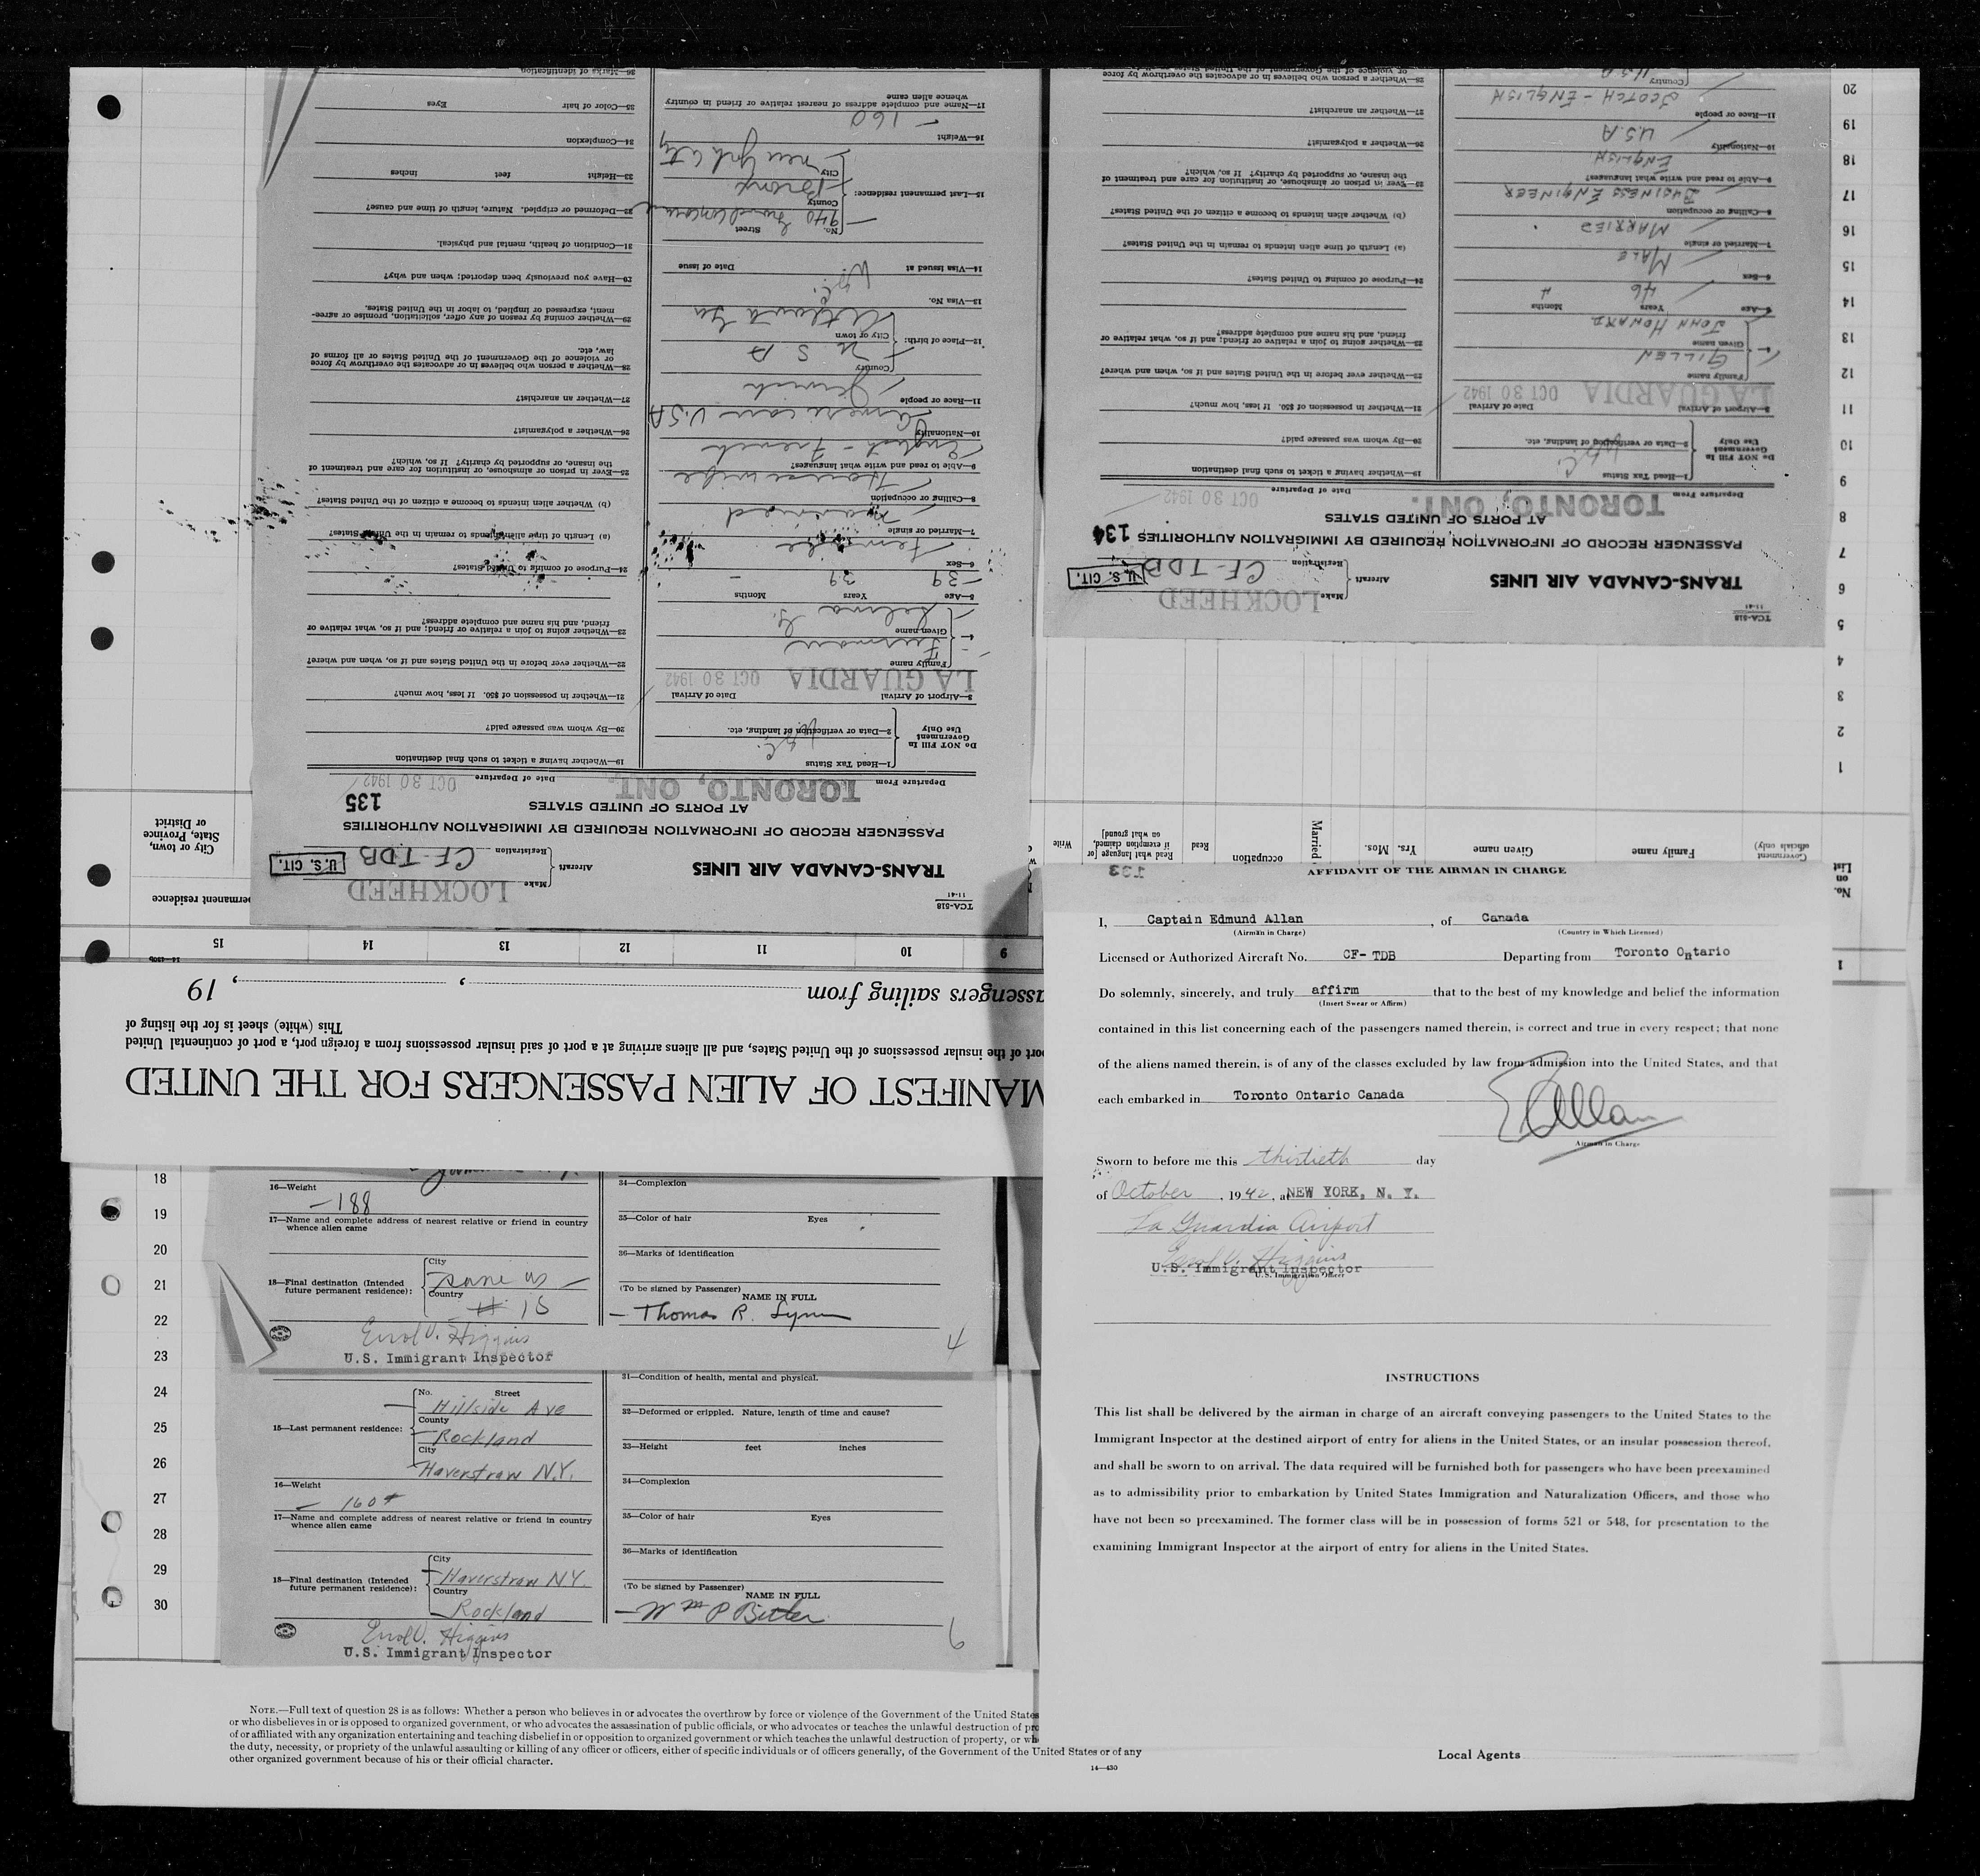 TCA-518
11-41
TRANS-CANADA AIR LINES
Aircraft
Make LOCKHEED
Registration CF-TDB
U. S. CIT.
PASSENGER RECORD OF INFORMATION REQUIRED BY IMMIGRATION AUTHORITIES
AT PORTS OF UNITED STATES
135
Departure From TORONTO, ONT. Date of Departure OCT 30 1942
Do NOT Fill In
Government
Use Only
1—Head Tax Status
2—Data or verification of landing, etc.
3—Airport of Arrival LA GUARDIA Date of Arrival OCT 30 1942
4— Family name Furman
Given name Selma G.
5—Age 39 Years 39 Months -
6—Sex female
7—Married or single married
8—Calling or occupation Housewife
9—Able to read and write what languages? English - French
10—Nationality American U.S.A
11—Race or people Jewish
12—Place of birth: Country U S A
City or town Atlanta Ga
13—Visa No.
14—Visa Issued at Date of issue
15—Last permanent residence: No. Street 940 Grand Concourse
County Bronx
City New York City
16—Weight 160
17—Name and complete address of nearest relative or friend in country
whence alien came
19—Whether having a ticket to such final destination
20—By whom was passage paid?
21—Whether in possession of $50. If less, how much?
22—Whether ever before in the United States and if so, when and where?
23—Whether going to join a relative or friend; and if so, what relative or
friend, and his name and complete address?
24—Purpose of coming to United States?
(a) Length of time alien intends to remain in the United States?
(b) Whether alien intends to become a citizen of the United States?
25—Ever in prison or almshouse, or institution for care and treatment of
the insane, or supported by charity? If so, which?
26—Whether a polygamist?
27—Whether an anarchist?
28—Whether a person who believes in or advocates the overthrow by force
or violence of the Government of the United States or all forms of
law, etc.
29—Whether coming by reason of any offer, solicitation, promise or agree-
ment, expressed or implied, to labor in the United States.
29—Have you previously been deported; when and why?
31—Condition of health, mental and physical.
32—Deformed or crippled. Nature, length of time and cause?
33—Height feet inches
34—Complexion
35—Color of hair Eyes
36—Marks of identification
TCA-518
11-41
TRANS-CANADA AIR LINES
Aircraft
Make LOCKHEED
Registration CF-TDB
U. S. CIT.
PASSENGER RECORD OF INFORMATION REQUIRED BY IMMIGRATION AUTHORITIES
AT PORTS OF UNITED STATES
134
Departure From TORONTO, ONT. Date of Departure OCT 30 1942
Do NOT Fill In
Government
Use Only
1—Head Tax Status
2—Data or verification of landing, etc.
3—Airport of Arrival LA GUARDIA Date of Arrival OCT 30 1942
4— Family name GILLEN
Given name JOHN HOWARD
5—Age 46 Years 4 Months
6—Sex MALE
7—Married or single MARRIED
8—Calling or occupation BUSINESS ENGINEER
9—Able to read and write what languages? ENGLISH
10—Nationality U.S.A
11—Race or people SCOTCH - ENGLISH
Country U.S.A
19—Whether having a ticket to such final destination
20—By whom was passage paid?
21—Whether in possession of $50. If less, how much?
22—Whether ever before in the United States and if so, when and where?
23—Whether going to join a relative or friend; and if so, what relative or
friend, and his name and complete address?
24—Purpose of coming to United States?
(a) Length of time alien intends to remain in the United States?
(b) Whether alien intends to become a citizen of the United States?
25—Ever in prison or almshouse, or institution for care and treatment of
the insane, or supported by charity? If so, which?
26—Whether a polygamist?
27—Whether an anarchist?
28—Whether a person who believes in or advocates the overthrow by force
or violence of the Government of the United States or all forms of
20
19
18
17
16
15
14
13
12
11
10
9
8
7
6
5
4
3
2
1
No. on List
Government officials only)
Family name
Given name
Yrs.
Mos.
Married
occupation
Read
Read what language [or if exemption claimed, on what ground]
Write
City or town, State, Province or District
permanent residence
9 10 11 12 13 14 15
1
MANIFEST OF ALIEN PASSENGERS FOR THE UNITED
port of the insular possessions of the United States, and all aliens arriving at a port of said insular possessions from a foreign port, a port of continental United
This (white) sheet is for the listing of
assengers sailing from , , 19
133
AFFIDAVIT OF THE AIRMAN IN CHARGE
I, Captain Edmund Allan, of Canada
(Airman in Charge) (Country in Which Licensed)
Licensed or Authorized Aircraft No. CF- TDB Departing from Toronto Ontario
Do solemnly, sincerely, and truly affirm that to the best of my knowledge and belief the information
(Insert Swear or Affirm)
contained in this list concerning each of the passengers named therein, is correct and true in every respect; that none
of the aliens named therein, is of any of the classes excluded by law from admission into the United States, and that
each embarked in Toronto Ontario Canada
E Allan
Airman in Charge
Sworn to before me this thirtieth day
of October, 1942, at NEW YORK, N. Y.
La Guardia Airport
Errol V. Higgins
U.S. Immigrant Inspector
U. S. Immigration Officer
INSTRUCTIONS
This list shall be delivered by the airman in charge of an aircraft conveying passengers to the United States to the
Immigrant Inspector at the destined airport of entry for aliens in the United States, or an insular possession thereof,
and shall be sworn to on arrival. The data required will be furnished both for passengers who have been preexamined
as to admissibility prior to embarkation by United States Immigration and Naturalization Officers, and those who
have not been so preexamined. The former class will be in possession of forms 521 or 548, for presentation to the
examining Immigrant Inspector at the airport of entry for aliens in the United States.
18
19
20
21
22
23
24
25
26
27
28
29
30
16—Weight 188
17—Name and complete address of nearest relative or friend in country
whence alien came
18—Final destination (Intended
future permanent residence):
City same as
Country # 15
34—Complexion
35—Color of hair Eyes
36—Marks of identification
(To be signed by Passenger)
NAME IN FULL
Thomas R. Lynn
Errol V. Higgins
U.S. Immigrant Inspector
4
15—Last permanent residence:
No. Street Hillside Ave
County Rockland
City Haverstraw N.Y.
16—Weight 160
17—Name and complete address of nearest relative or friend in country
whence alien came
18—Final destination (Intended
future permanent residence):
City Haverstraw N.Y.
Country Rockland
31—Condition of health, mental and physical.
32—Deformed or crippled. Nature, length of time and cause?
33—Height feet inches
34—Complexion
35—Color of hair Eyes
36—Marks of identification
(To be signed by Passenger)
NAME IN FULL
Wm P Bitler
Errol V. Higgins
U.S. Immigrant Inspector
9
NOTE.—Full text of question 28 is as follows: Whether a person who believes in or advocates the overthrow by force or violence of the Government of the United States
or who disbelieves in or is opposed to organized government, or who advocates the assassination of public officials, or who advocates or teaches the unlawful destruction of
of or affiliated with any organization entertaining and teaching disbelief in or opposition to organized government or which teaches the unlawful destruction of property, or
the duty, necessity, or propriety of the unlawful assaulting or killing of any officer or officers, either of specific individuals or of officers generally, of the Government of the United States or of any
other organized government because of his or their official character.
14—430
Local Agents